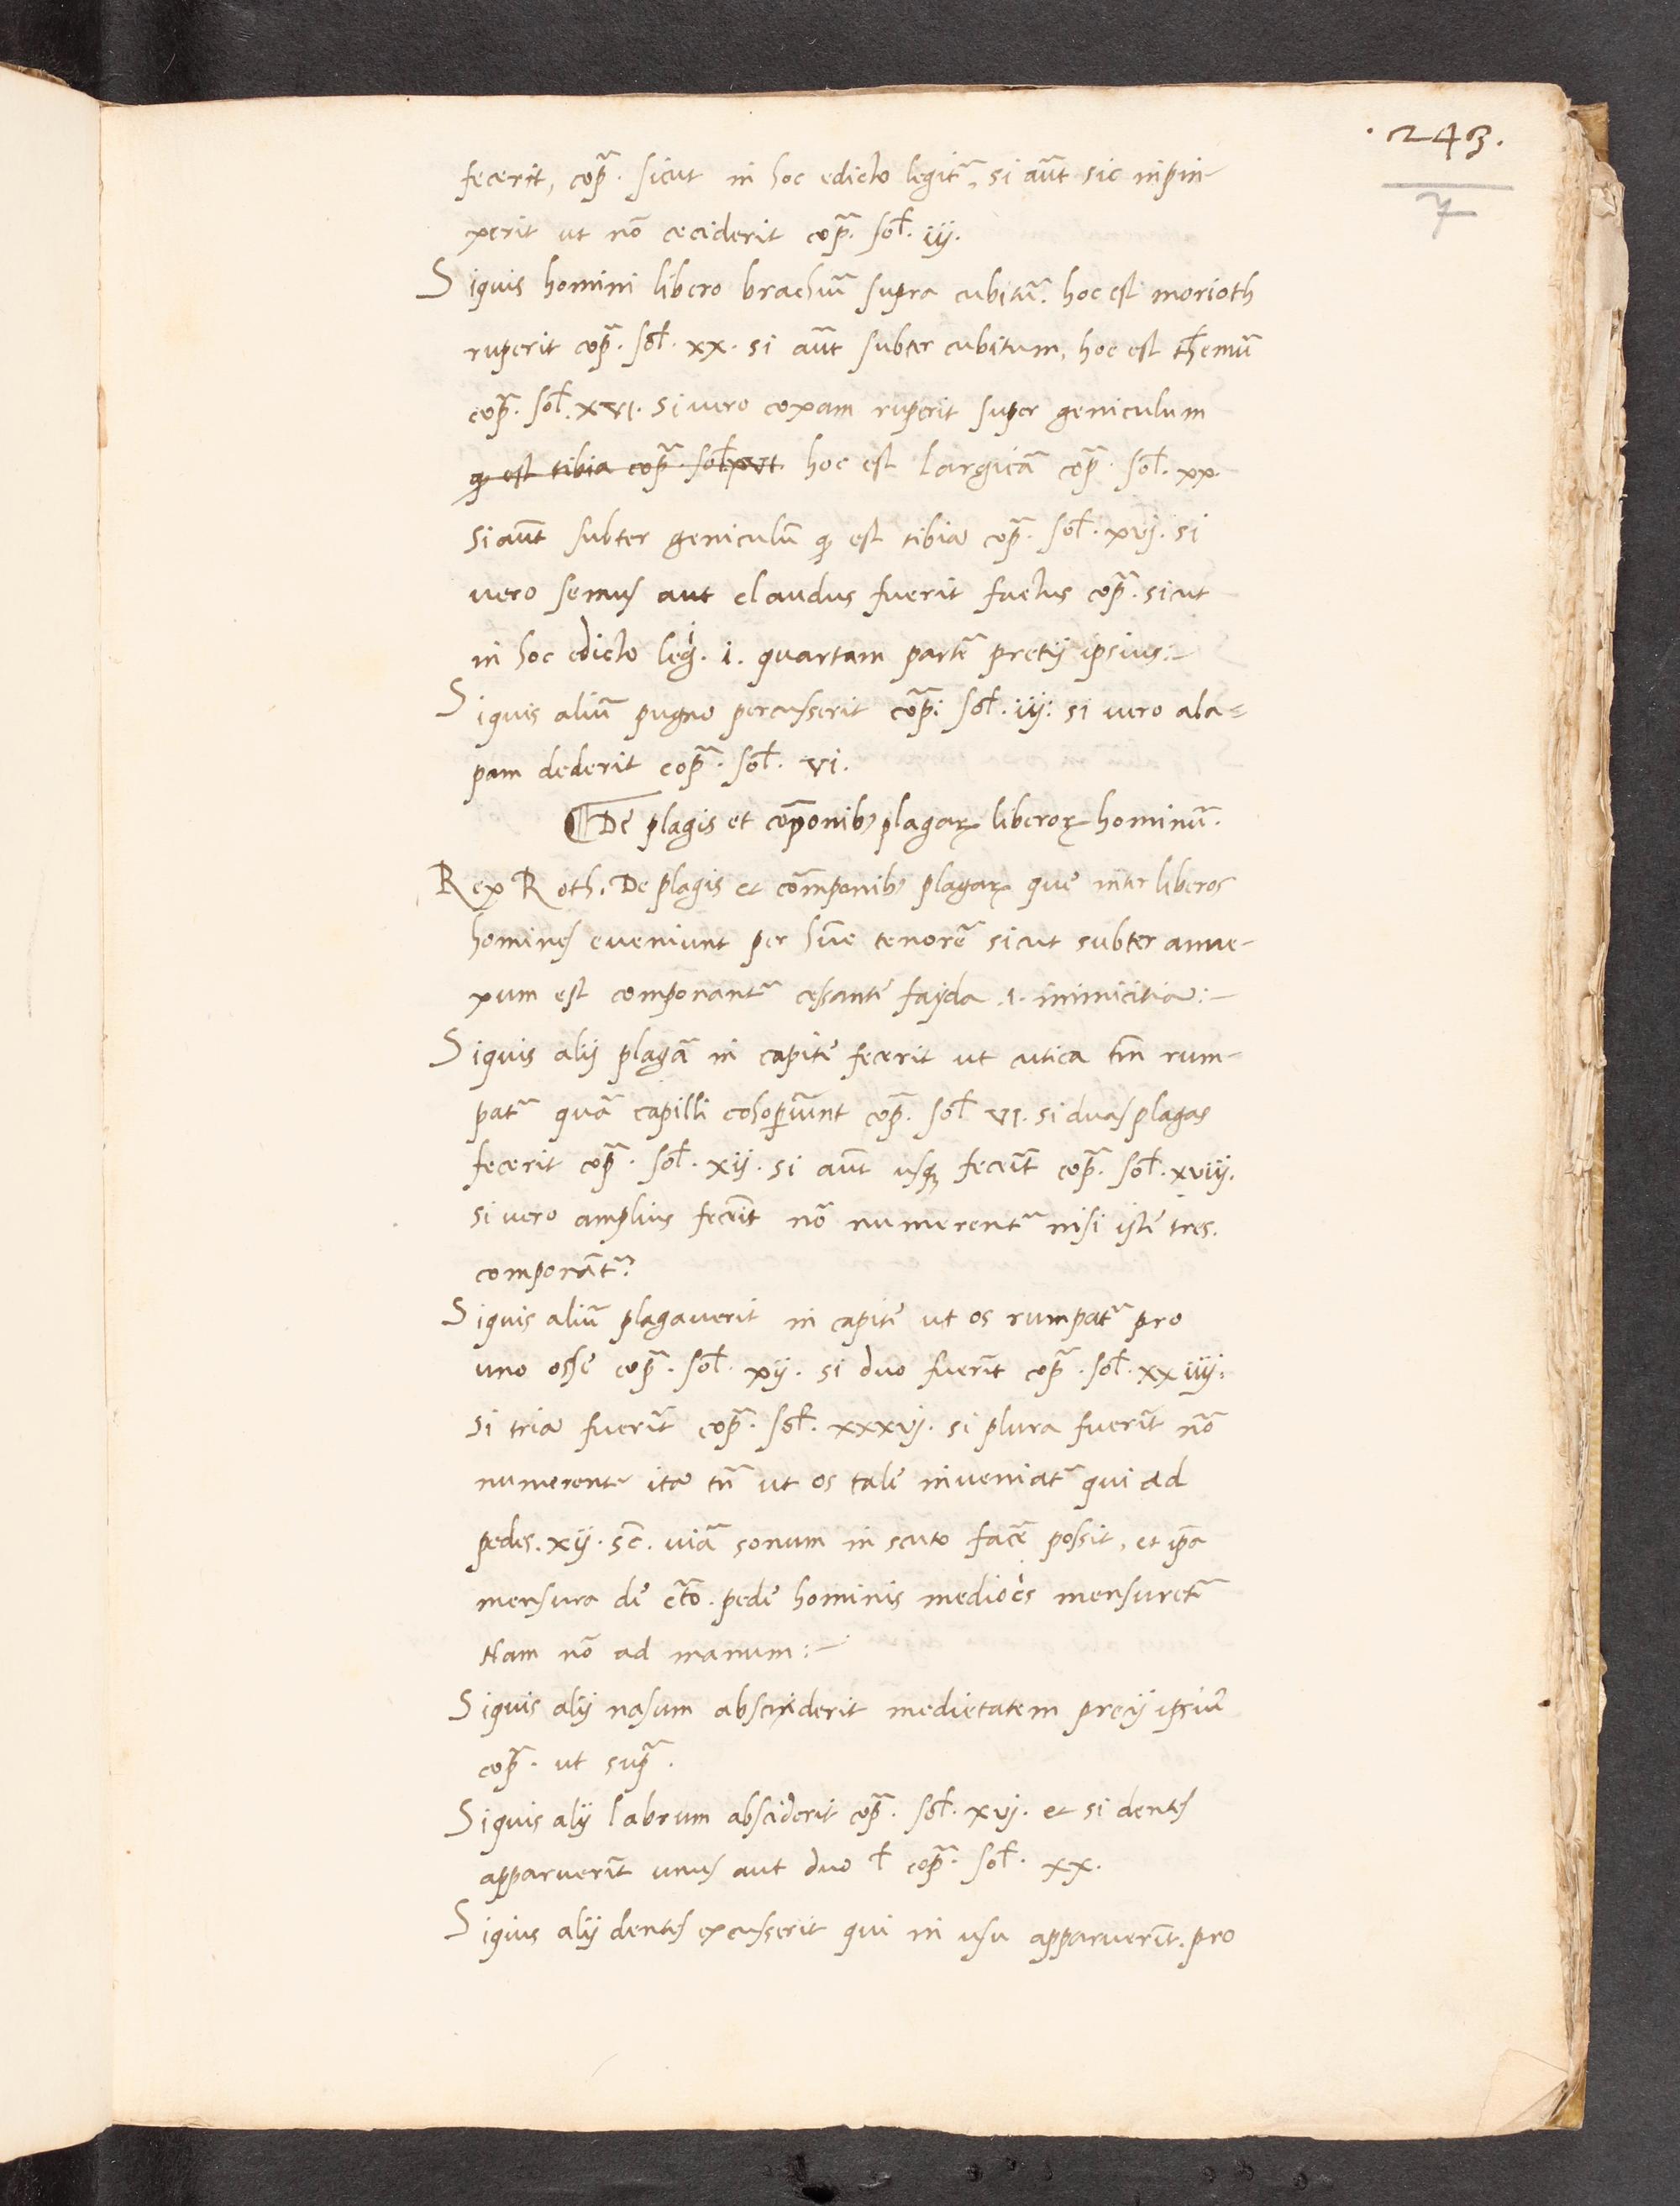 .243.
7
fecerit, cop̃a. sicut in hoc edicto legit̃. si aũt sic inpin-
xerit ut nõ ceciderit cop̃a. sol̃. iij.
Siquis homini libero brachiũ supra cubitũ. hoc est morioth
ruperit cop̃a. sol̃. xx. si aũt subter cubitum, hoc est th̃emũ
cop̃a. sol̃. xvi. si uero coxam ruperit super geniculum
qđ est tibia cop̃a. sol̃ xvi. hoc est largicã cop̃a. sol̃. xx.
Si aũt subter geniculũ qđ est tibia cop̃a. sol̃. xvj. si
uero semus aut claudus fuerit factus cop̃a. sicut
in hoc edicto leg̃. i. quartam partẽ pretij ipsius:-
Siquis aliũ pugno percusserit cop̃a: sol̃. iij: si uero ala=
pam dederit cop̃a. sol̃. vi.
¶De plagis et cop̃onib; plagaꝝ liberoꝝ hominũ.
Rex Roth. De plagis et cõmponib; plagaꝝ que inter liberos
homines eueniunt per hũc tenorẽ sicut subter anne-
xum est componant̃ cessante fayda .i. inimicitia:-
Siquis alij plagã in capite fecerit ut cutica tm̃ rum-
pat̃ quã capilli cohoperiunt cop̃a. sol̃ vi. si duas plagas
fecerit cop̃a. sol̃. xij. si aũt usqꝫ fecerĩt cop̃a. sol̃. xviij.
si uero amplius fecerit nõ numerent̃ nisi iste tres.
componãt̃.
Siquis aliũ plagauerit in capite ut os rumpat̃ pro
uno osse cop̃a. sol̃. xij. si duo fuerĩt cop̃a. sol̃. xxiiij.
si tria fuerĩt cop̃a. sol̃. xxxvj. si plura fuerĩt nõ
numerent̃ ita tñ ut os tale inueniat̃ qui ad
pedes. xij. sc̃. uiã sonum in scuto facẽ possit, et ip̃a
mensura de c̃to. pede hominis medioc̃s mensuret̃
Nam nõ ad manum:-
Siquis alij nasum absciderit medietatem precij ipsius
cop̃a. ut sup̃a.
Siquis alij labrum absciderit cop̃a. sol̃. xvj. et si dentes
apparuerĩt unus aut duo ł cop̃a. sol̃. xx.
Siquis alij dentes excusserit qui in usu apparuerĩt. pro